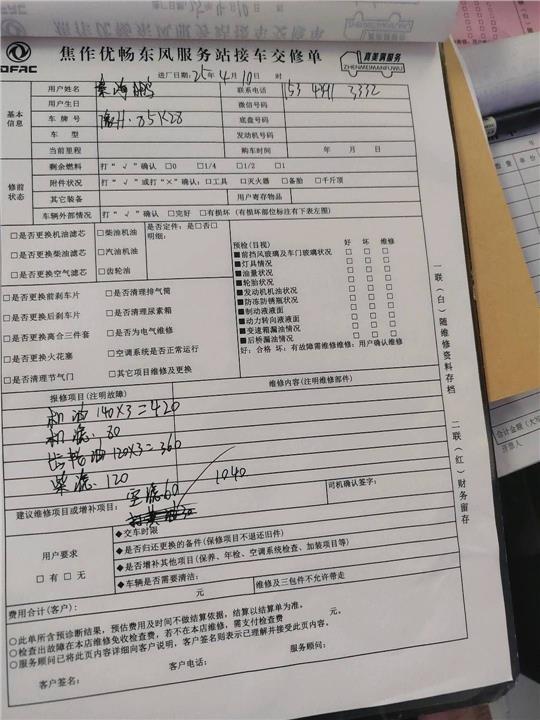 DFAC
焦作优畅东风服务站接车交修单
真美满服务
ZHENMEIMANFUWU
进厂日期: 25年4月10日 时
基本信息
用户姓名 秦海鹏 联系电话 153 4391 3332
用户生日 微信号码
车牌号 豫H·85K28 底盘号码
车型 发动机号码
当前里程 购车时间 年 月 日
修前状态
剩余燃料 打“√”确认 □0 □1/4 □1/2 □1
附件状况 打“√”或打“×”确认:□工具 □灭火器 □备胎 □千斤顶
其它装备 用户寄存物品
车辆外部情况 打“√”确认 □完好 □有损坏 (有损部位标注有下表左图)
□是否更换机油滤芯 □柴油机油 是否定件: 是□否□
明细:
□是否更换柴油滤芯 □汽油机油
□是否更换空气滤芯 □齿轮油
□是否更换前刹车片 □是否清理排气筒
□是否更换后刹车片 □是否清理尿素箱
□是否更换离合三件套 □是否为电气维修
□是否更换火花塞 □空调系统是否正常运行
□是否清理节气门 □其它项目维修及更换
预检(目视) 好 坏 维修
■前挡风玻璃及车门玻璃状况 □ □ □
■灯具情况 □ □ □
■油量状况 □ □ □
■轮胎状况 □ □ □
■发动机机油状况 □ □ □
■防冻防锈瓶状况 □ □ □
■制动液液面 □ □ □
■动力转向液液面 □ □ □
■变速箱漏油情况 □ □ □
■后桥漏油情况 □ □ □
好: 合格 坏: 有故障需维修维修: 用户确认维修
报修项目(注明故障) 维修内容(注明维修部件)
机油 140×3=420
机滤. 80
齿轮油 120×3=360
柴滤. 120
空滤.60
1040
建议维修项目或增补项目: 司机确认签字:
用户要求
□有 □无
◆交车时限
◆是否归还更换的备件(保修项目不退还旧件)
◆是否增补其他项目(保养、年检、空调系统检查、加装项目等)
◆车辆是否需要清洁:
元 维修及三包件不允许带走
费用合计(客户): 元。
○此单所含预诊断结果,预估费用及时间不做结算依据,结算以结算单为准。
○检查出故障在本店维修免收检查费,若不在本店维修,需支付检查费
○服务顾问已将此页内容详细向客户说明,客户签名则表示已理解并接受此页内容。
客户签名: 客户电话: 服务顾问:
一联(白)随维修资料存档
二联(红)财务留存